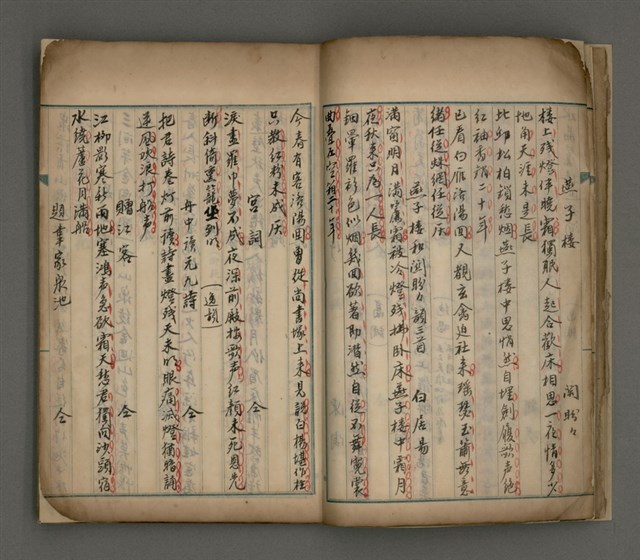 燕子楼
関盼々
楼上残燈伴曉霜獨眠人起合歡床相思一夜情多少
地角天涯未是長
北邙松柏鎖愁烟燕子楼中思悄然自埋劍履歌声絶
紅袖香銷二十年
已看白雁洛陽回又覩玄禽迫社来瑶瑟玉簫無意
緒任従蛛網任従灰
燕子楼和関盼々韻三首 白居易
満窗明月満簾霜被冷燈残拂卧床燕子楼中霜月
夜秋来只為一人長
鈿暈羅衫色似烟幾回欲著即潸然自従不舞霓裳
曲疊在空箱二十年
今春有客洛陽回曽従尚書塚上来見説白楊堪作柱
只教紅粉未成灰
宮詞 仝
涙盡羅巾夢不成夜深前殿按歌声紅顔未死恩先
断斜倚薫篭坐到明
舟中讀元九詩 仝
把君詩巻灯前讀詩盡燈残天未明眼痛滅燈猶暗誦
逆風吹浪打船声
贈江客 仝
江柳影寒新雨地塞鴻声急欲霜天愁君獨向沙頭宿
水繞蘆花月満船
題韋家泉池 仝